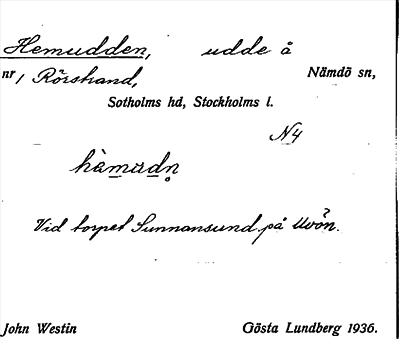 Hemudden, udde å
nr 1 Rörstrand, Nämdö sn,
Sotholms hd, Stockholms l.
N4
hèmudn̥
Vid torpet Sunnansund på Uvön.
John Westin Gösta Lundberg 1936.